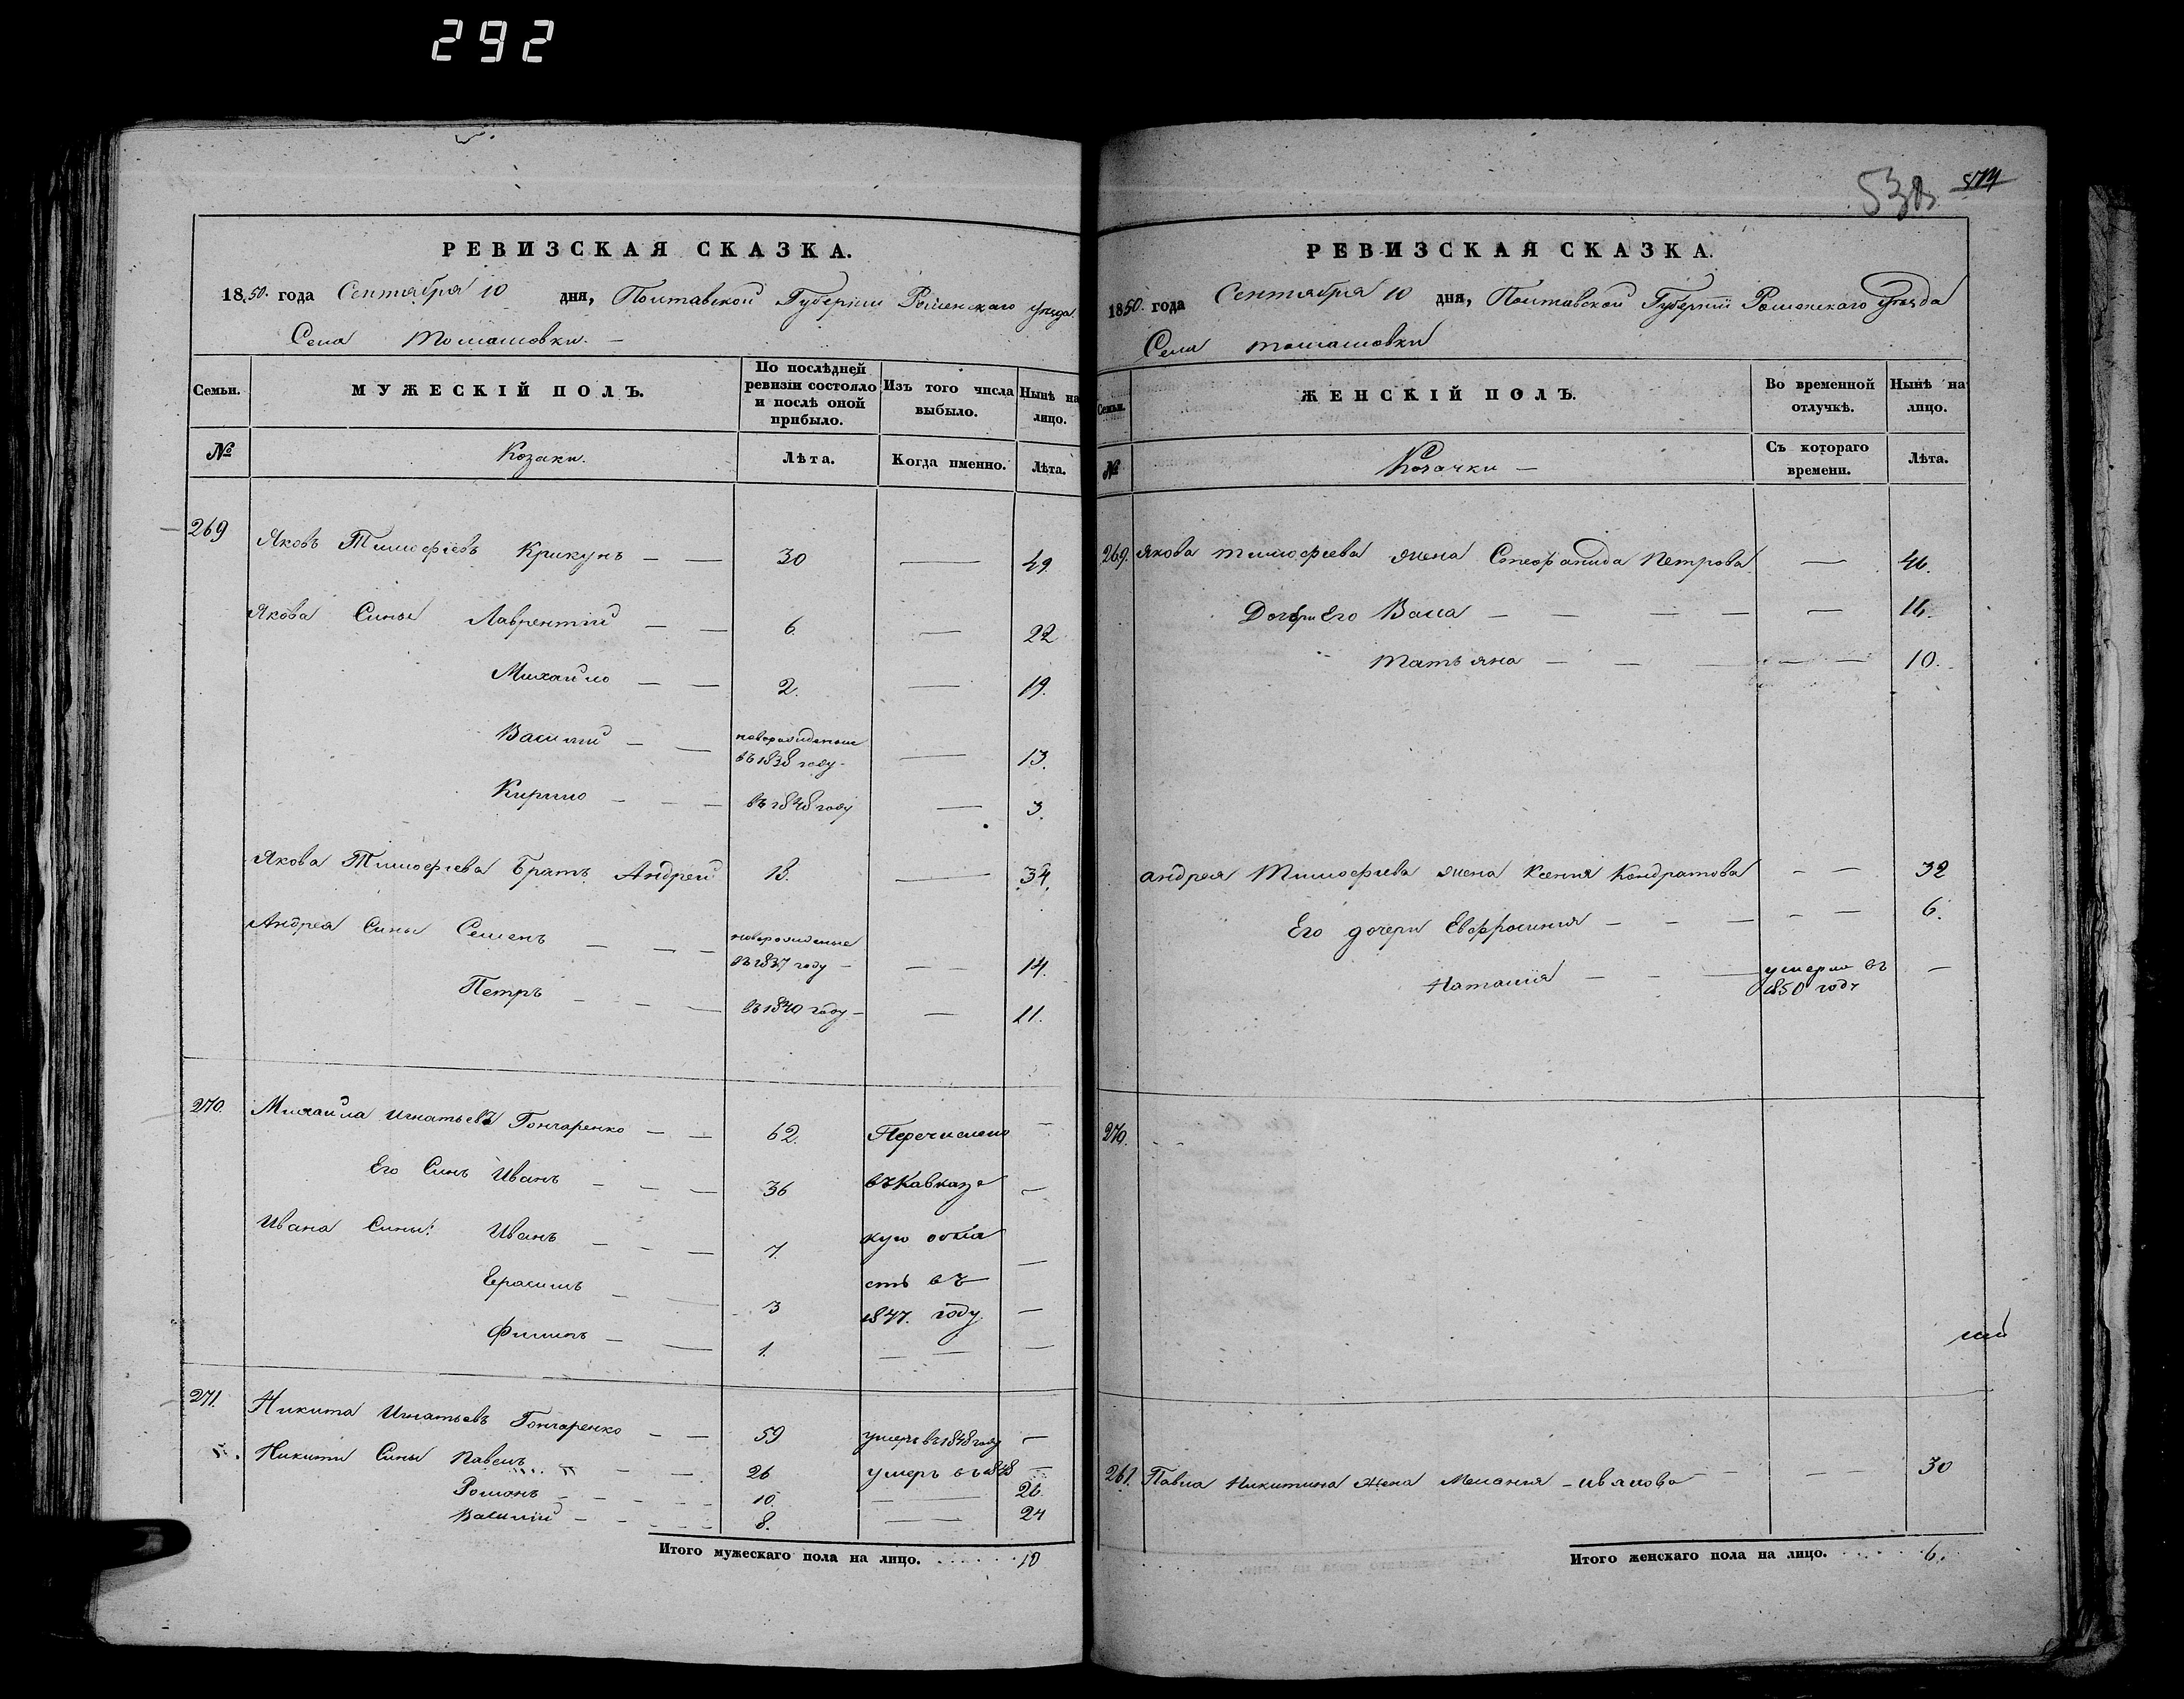 292
РЕВИЗСКАЯ СКАЗКА.
1850. года Сентября 10 дня, Полтавской Губерніи Роменскаго уезда.
Села Томашовки. —
Семьи.
МУЖЕСКІЙ ПОЛЪ.
По послѣдней ревизіи состояло и послѣ оной прибыло.
Изъ того числа выбыло.
Нынѣ на лицо.
№
Козаки.
Лѣта.
Когда именно.
Лѣта.
269 Яковъ Тимофіевъ Крикунъ — — 30 — 49.
Якова Сины Лаврентій — — 6. — 22
Михайло — — 2. — 19.
Василий — — новорожденые въ 1838 году — — 13.
Кирило — — — въ 1848 году — 3.
Якова Тимофіева Братъ Андрей 18. — 34.
Андрея Сины Семенъ — — — новорожденые въ 1837 году — — — 14.
Петръ — — — въ 1840 году — — 11.
270. Михайла Игнатьевъ Гончаренко — — 62. Перечислено —
Его Синъ Иванъ — — — 36 въ Кавказс —
Ивана Сины: Иванъ — — — 7. кую обла —
Ерасимъ — — 3 сть въ —
1847. году.
Филипъ — — 1. — — —
271. Никита Игнатьевъ Гончаренко — — 59 умеръ въ 1848 году —
Никиты Сины Павелъ — — 26 умеръ въ 1848 —
Романъ — — — — 10. — 26.
Василій — — — — 8. — 24
Итого мужескаго пола на лицо. . . . . . . 10
РЕВИЗСКАЯ СКАЗКА.
1850. года Сентября 10 дня, Полтавской Губерніи Роменскаго уезда
Села Томашовки
Семьи.
ЖЕНСКІЙ ПОЛЪ.
Во временной отлучкѣ.
Нынѣ на лицо.
№
Козачки —
Съ котораго времени.
Лѣта.
269. Якова Тимофіева жена Стефанида Петрова — 46.
Дочери Его Васса — — — — — 16.
Татьяна — — — — — 10.
Андрея Тимофіева жена Ксенія Кондратова — — 32
Его дочери Евфросинія — — — — — 6.
Наталія — — — умерла въ 1850 году —
270.
261. Павла Никитина Жена Меланія — Иванова — — — 30
Итого женскаго пола на лицо. . . . . 6.